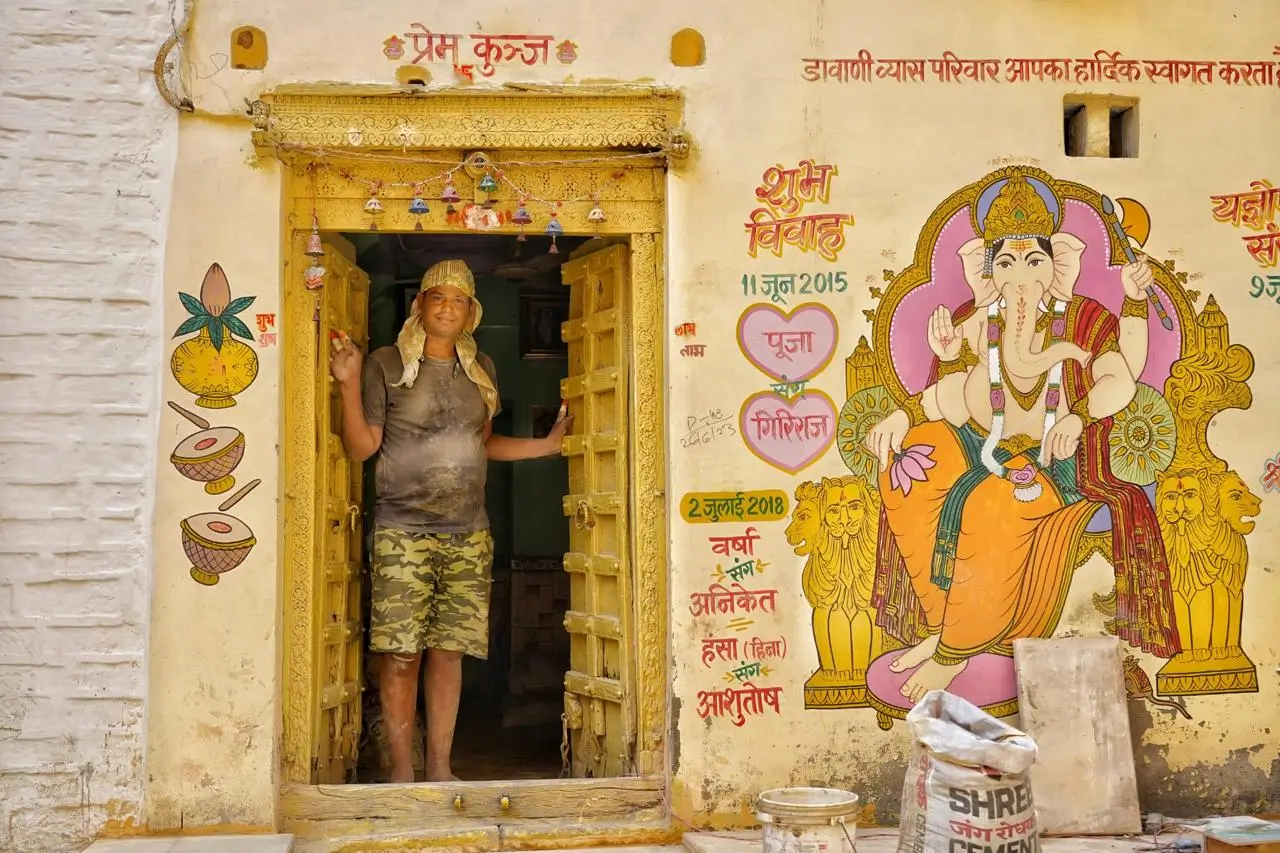 प्रेम कुञ्ज
डावाणी व्यास परिवार आपका हार्दिक स्वागत करता है
शुभ
विवाह
11 जून 2015
पूजा
संग
गिरिराज
शुभ
लाभ
P-48
26/6/23
2 जुलाई 2018
वर्षा
संग
अनिकेत
हंसा (हिना)
संग
आशुतोष
SHREE
जंग रोधक
CEMENT